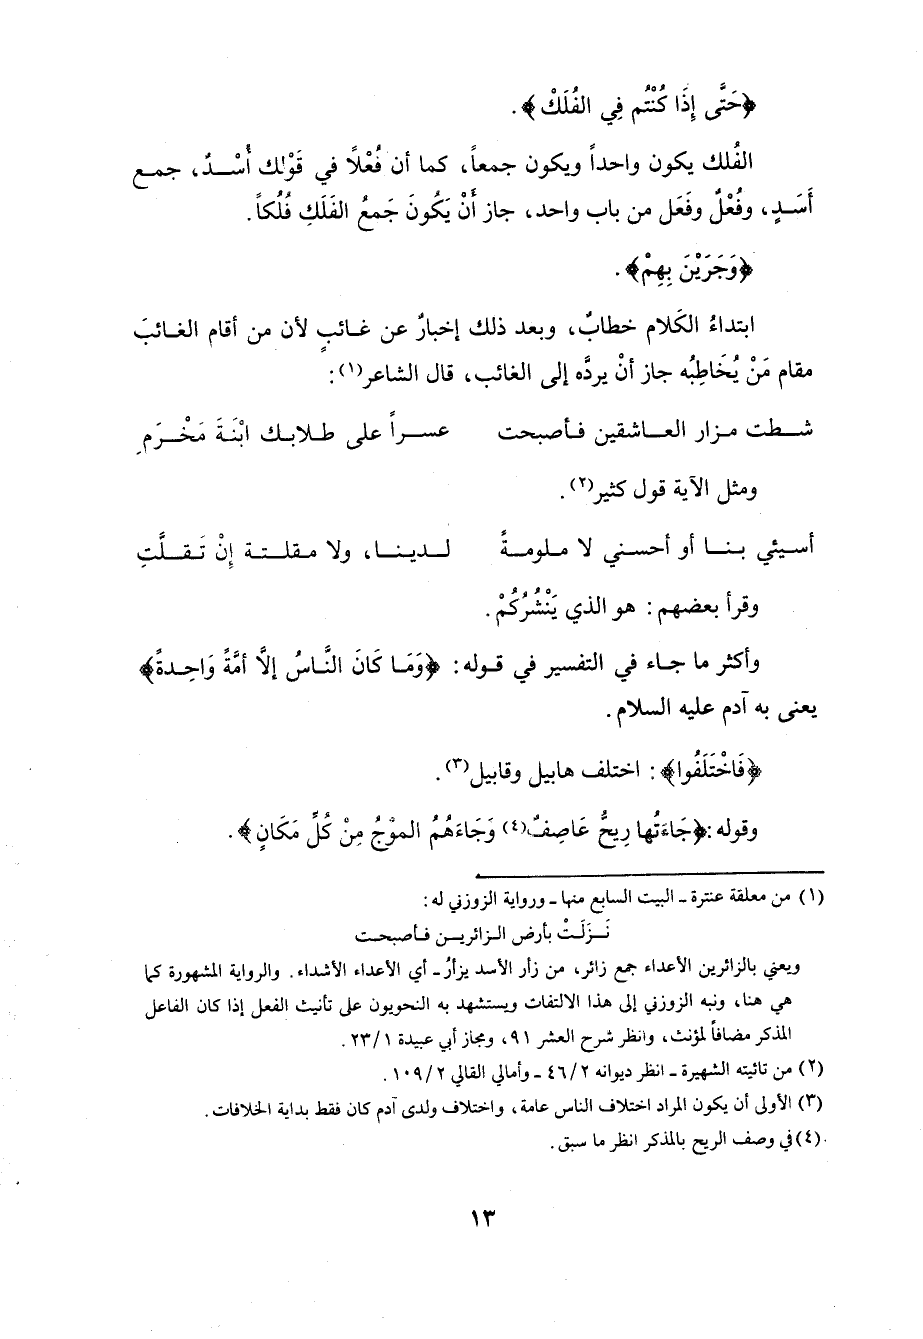 ﴿حَتَّى إِذَا كُنْتُم فِي الفُلَكْ﴾.
الفُلك يكون واحداً ويكون جمعاً، كما أن فُعْلاً في قَوْلك أُسْدٌ، جمع
أَسَدٍ، وفُعْلٌ وفَعَل من باب واحد، جاز أَنْ يَكُونَ جَمعُ الفَلَكِ فُلْكاً.
﴿وَجَرَيْنَ بِهِمْ﴾.
ابتداءُ الكَلام خطابٌ، وبعد ذلك إخبارٌ عن غائبٍ لأن من أقام الغائبَ
مقام مَنْ يُخَاطِبُه جاز أنْ يردَّه إلى الغائب، قال الشاعر(١):
شطت مزار العاشقين فأصبحت عسراً على طلابك ابْنَةَ مَخْرَمِ
ومثل الآية قول كثير(٢).
أسيئي بنا أو أحسني لا ملومةً لدينا، ولا مقلتة إِنْ تَقلَّتِ
وقرأ بعضهم: هو الذي يَنْشُرُكُمْ.
وأكثر ما جاء في التفسير في قوله: ﴿وَمَا كَانَ النَّاسُ إلَّا أمَّةً وَاحِدةً﴾
يعنى به آدم عليه السلام.
﴿فَاخْتَلَفُوا﴾: اختلف هابيل وقابيل(٣).
وقوله:﴿جَاءَتْها رِيحٌ عَاصِفٌ(٤) وَجَاءَهُمُ الموْجُ مِنْ كُلِّ مَكَانٍ﴾.
(١) من معلقة عنترة ـ البيت السابع منها ـ ورواية الزوزني له:
نَزَلَتْ بأرض الزائرين فأصبحت
ويعني بالزائرين الأعداء جمع زائر، من زأر الأسد يزأرُ ـ أي الأعداء الأشداء. والرواية المشهورة كما
هي هنا، ونبه الزوزني إلى هذا الالتفات ويستشهد به النحويون على تأنيث الفعل إذا كان الفاعل
المذكر مضافاً لمؤنث، وانظر شرح العشر ٩١، ومجاز أبي عبيدة ٢٣/١.
(٢) من تائيته الشهيرة ـ انظر ديوانه ٤٦/٢ ـ وأمالي القالي ١٠٩/٢.
(٣) الأولى أن يكون المراد اختلاف الناس عامة، واختلاف ولدى آدم كان فقط بداية الخلافات.
(٤) في وصف الريح بالمذكر انظر ما سبق.
١٣